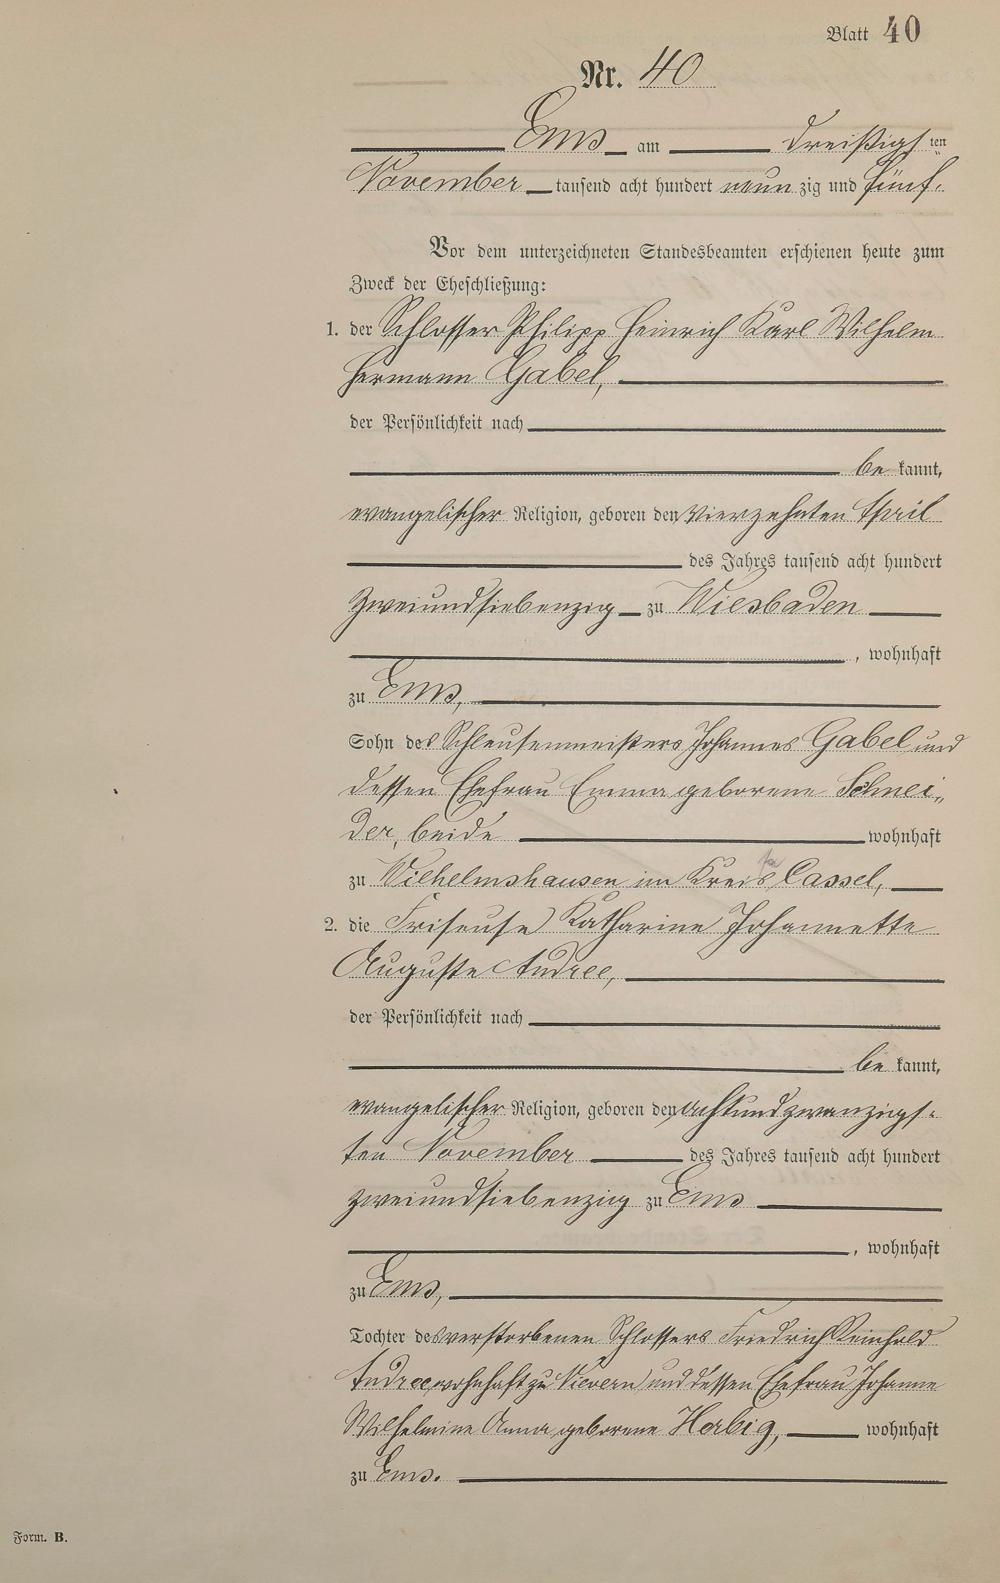 Blatt 40
Nr. 40
Ems am dreißigsten
November tausend acht hundert neunzig und fünf.
Vor dem unterzeichneten Standesbeamten erschienen heute zum
Zweck der Eheschließung:
1. der Schlosser Philipp Heinrich Karl Wilhelm
Hermann Gabel,
der Persönlichkeit nach
bekannt,
evangelischer Religion, geboren den vierzehnten April
des Jahres tausend acht hundert
zweiundsiebenzig zu Wiesbaden
, wohnhaft
zu Ems,
Sohn des Schleusenmeisters Johannes Gabel und
dessen Ehefrau Emma geborene Schnei„
der, beide wohnhaft
zu Wilhelmshausen im Kreis Cassel,
2. die Friseuse Katharine Johannette
Auguste Andree,
der Persönlichkeit nach
bekannt,
evangelischer Religion, geboren den achtundzwanzigs-
ten November des Jahres tausend acht hundert
zweiundsiebenzig zu Ems
, wohnhaft
zu Ems,
Tochter des verstorbenen Schlossers Friedrich Reinhold
Andree, wohnhaft zu Nievern, und dessen Ehefrau Johanne
Wilhelmine Anna geborene Herbig, wohnhaft
zu Ems.
Form. B.